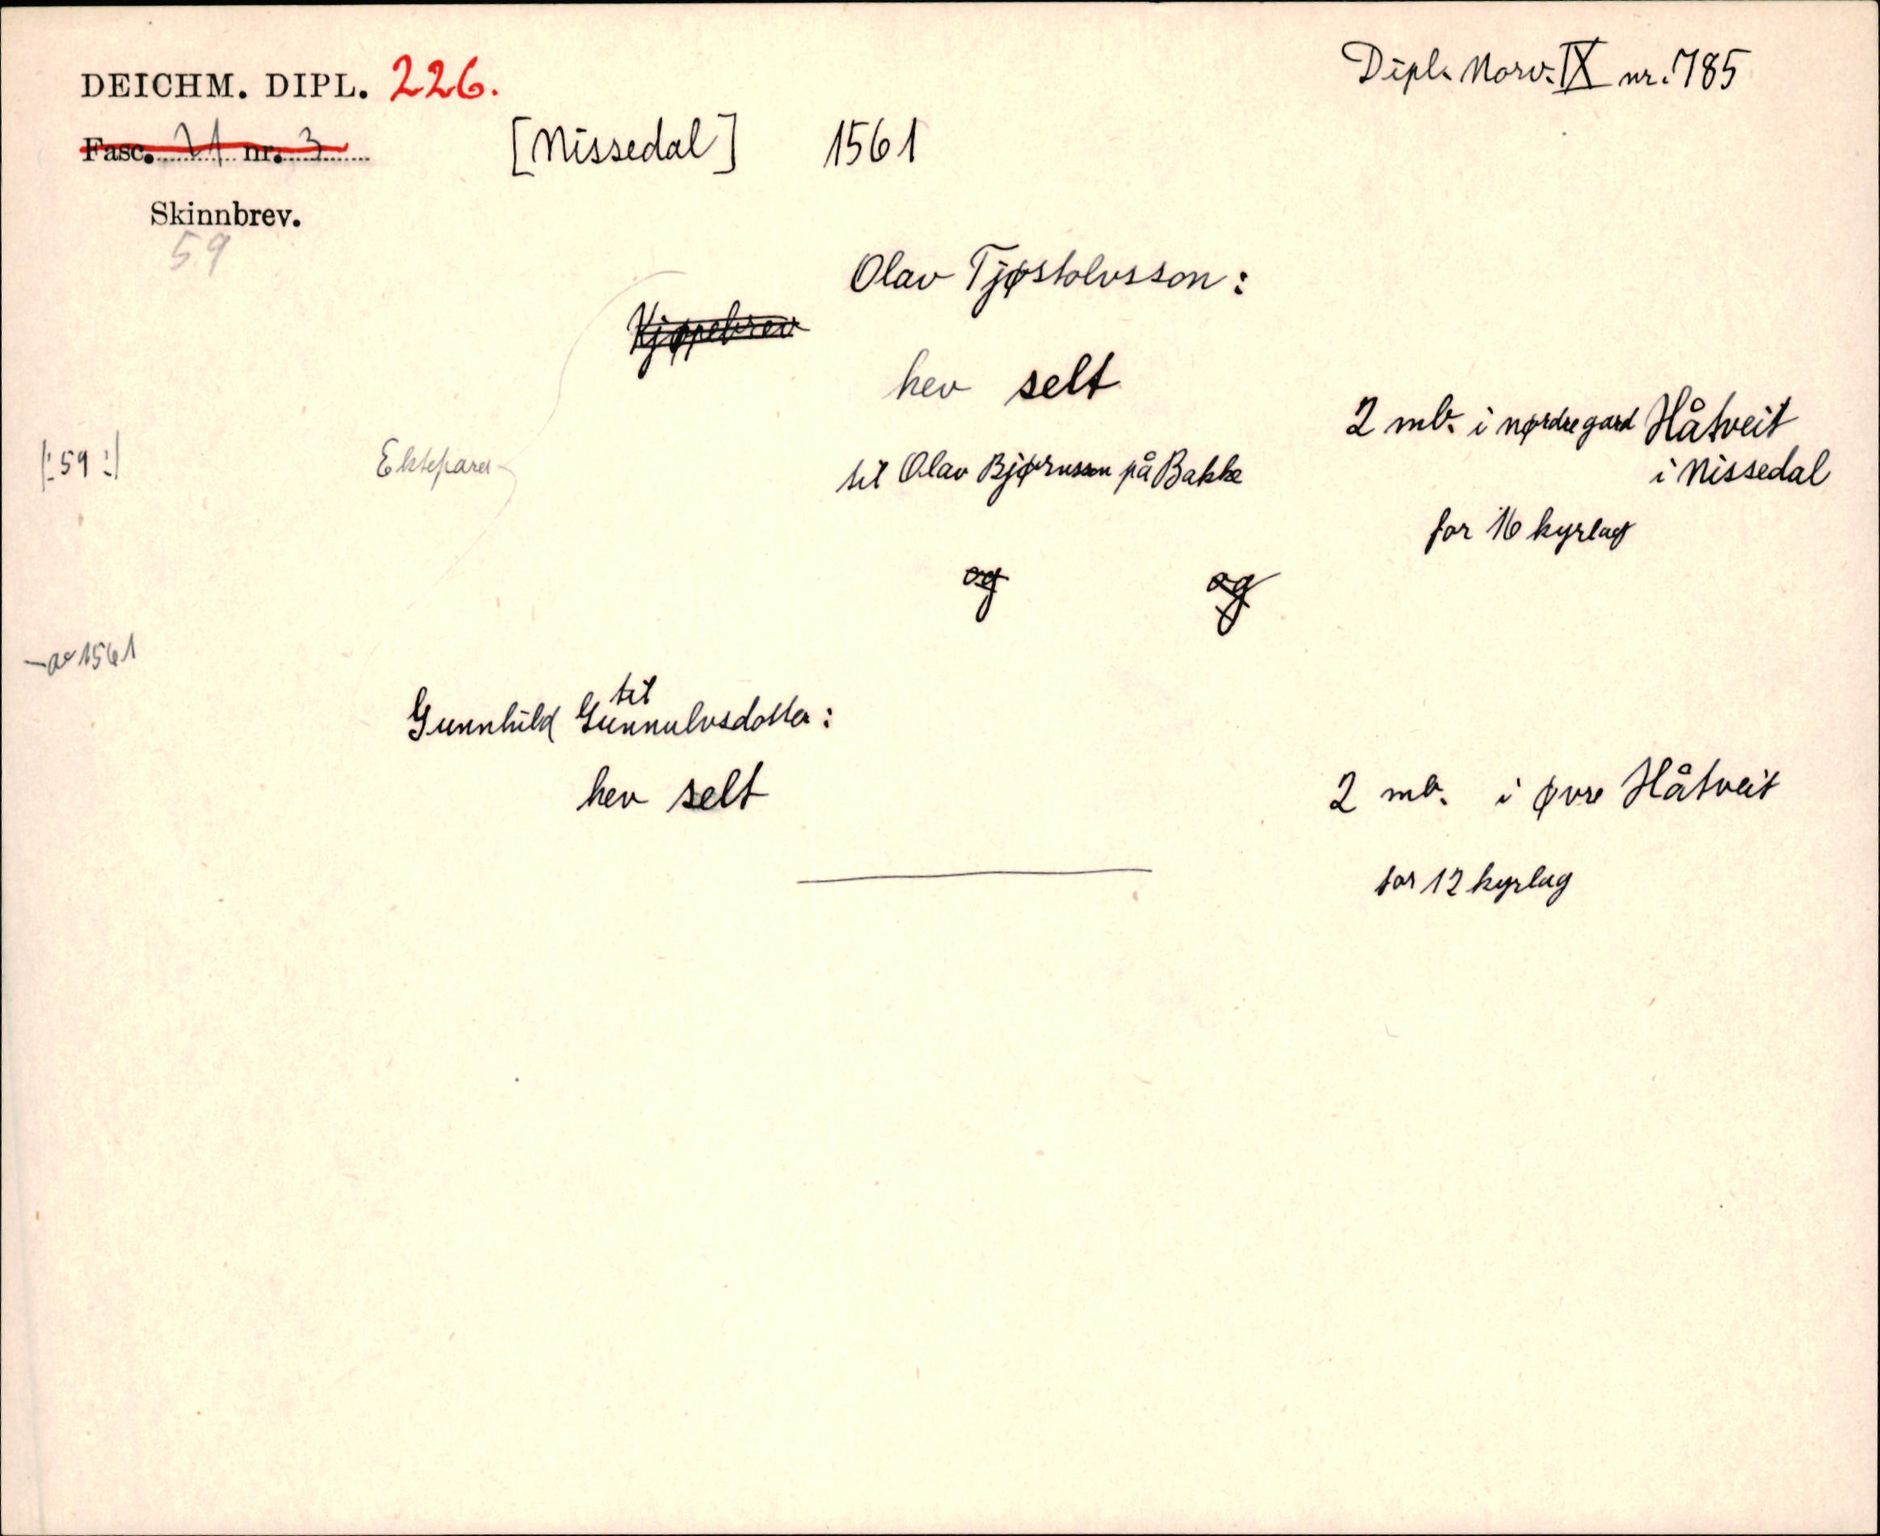 DEICHM. DIPL. 226.
Dipl. Norv. IX nr. 785
Fasc. 21 nr. 3
[Nissedal] 1561
Skinnbrev.
59
Olav Tjøstolvsson:
Kjøpebrev
hev selt
2 mb. i nørdregard Håtveit
|: 59 :|
Ektepara
til Olav Bjørnsson på Bakke
i Nissedal
for 16 kyrlag
og og
1561
til
Gunnhild Gunnulvsdotter:
hev selt
2 mb. i øvre Håtveit
for 12 kyrlag